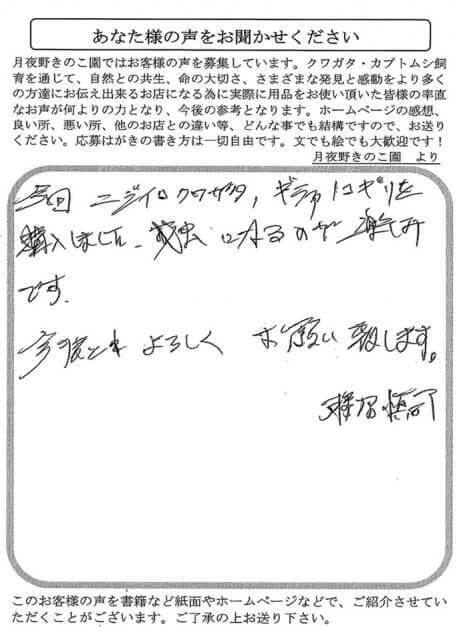 あなた様の声をお聞かせください
月夜野きのこ園ではお客様の声を募集しています。クワガタ・カブトムシ飼
育を通じて、自然との共生、命の大切さ、さまざまな発見と感動をより多く
の方達にお伝え出来るお店になる為に実際に用品をお使い頂いた皆様の率直
なお声が何よりの力となり、今後の参考となります。ホームページの感想、
良い所、悪い所、他のお店との違い等、どんな事でも結構ですので、お送り
ください。応募はがきの書き方は一切自由です。文でも絵でも大歓迎です！
月夜野きのこ園　より
今回 ニジイロクワガタ, ギラファノコギリを
購入しました。成虫になるのが 楽しみ
です.
今後とも よろしく お願い致します。
このお客様の声を書籍など紙面やホームページなどで、ご紹介させてい
ただくことがございます。ご了承の上お送り下さい。